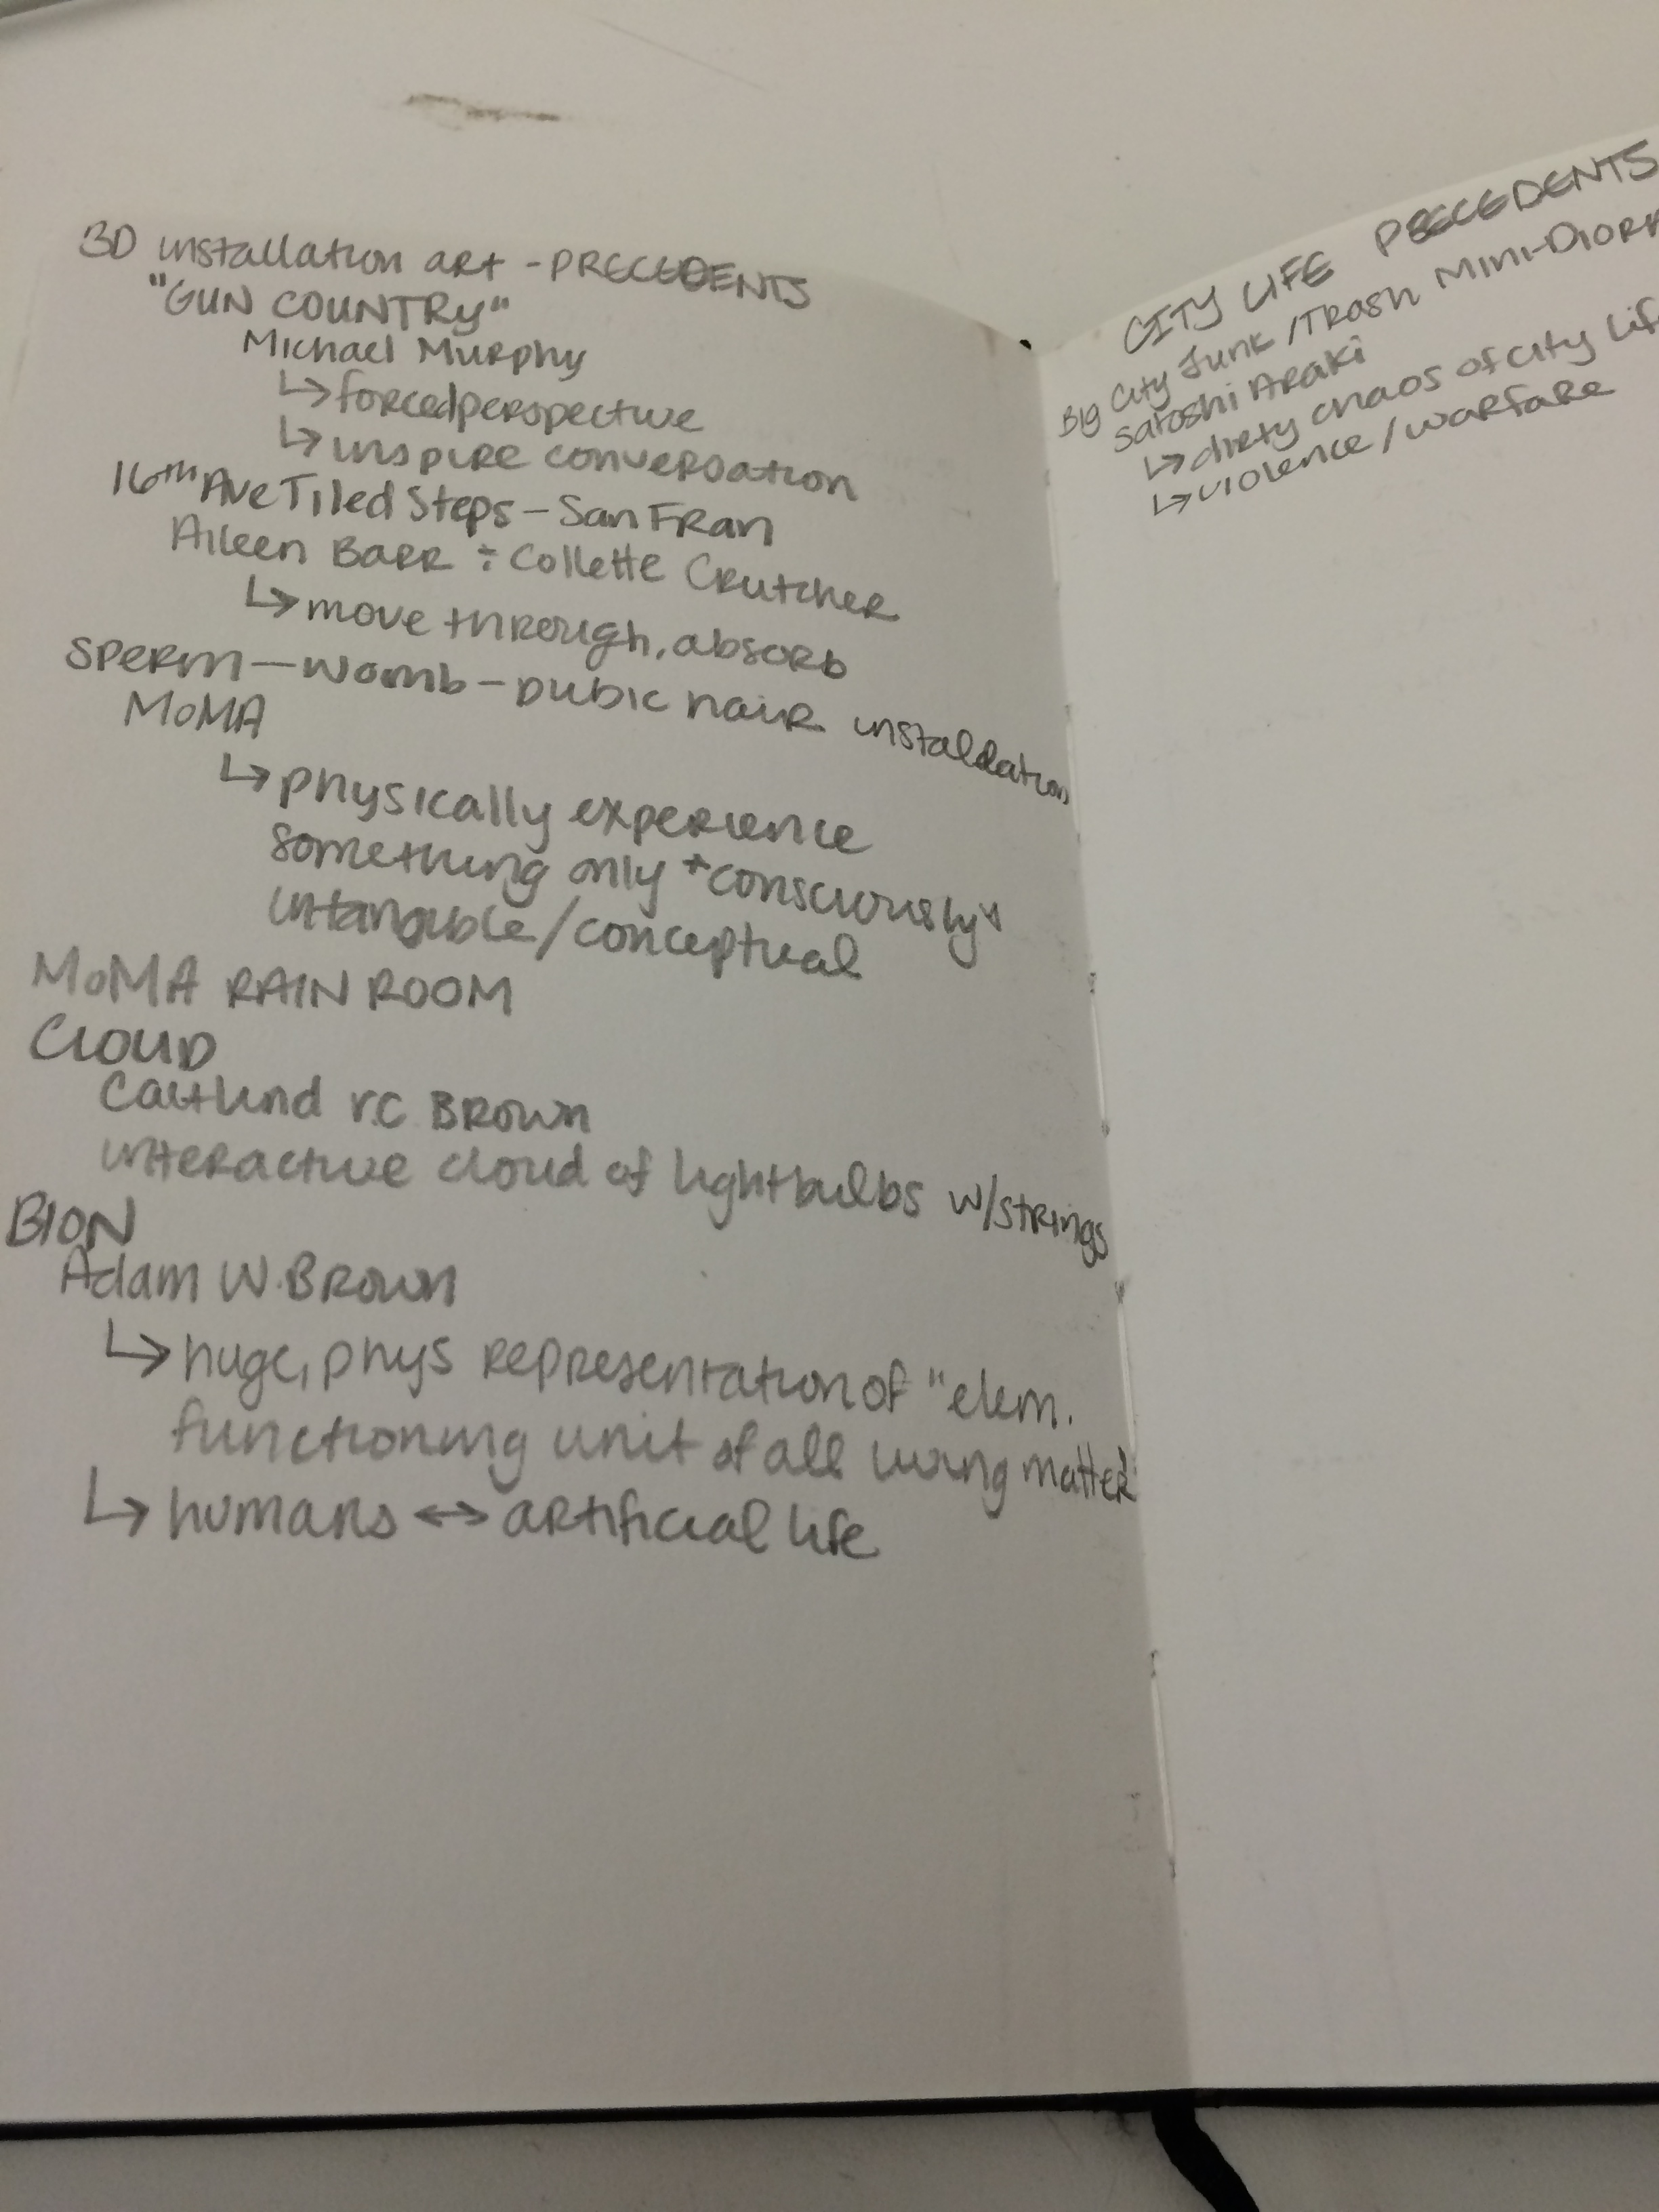 3D installation art - PRECEDENTS
"GUN COUNTRY"
Michael Murphy
↳ forced perspective
↳ inspire conversation
16th Ave Tiled Steps - San Fran
Aileen Barr ÷ Collette Crutcher
↳ move through, absorb
Sperm - womb - pubic hair installation
MoMA
↳ physically experience
something only *consciously*
intangible/conceptual
MoMA RAIN ROOM
CLOUD
Caitlind r.c. Brown
interactive cloud of lightbulbs w/strings
BION
Adam W. Brown
↳ huge, phys representation of "elem.
functioning unit of all living matter"
↳ humans ↔ artificial life
CITY LIFE PRECEDENTS
Big City Junk/Trash Mini-Dior
Satoshi Araki
↳ dirty chaos of city lif
↳ violence/warfare